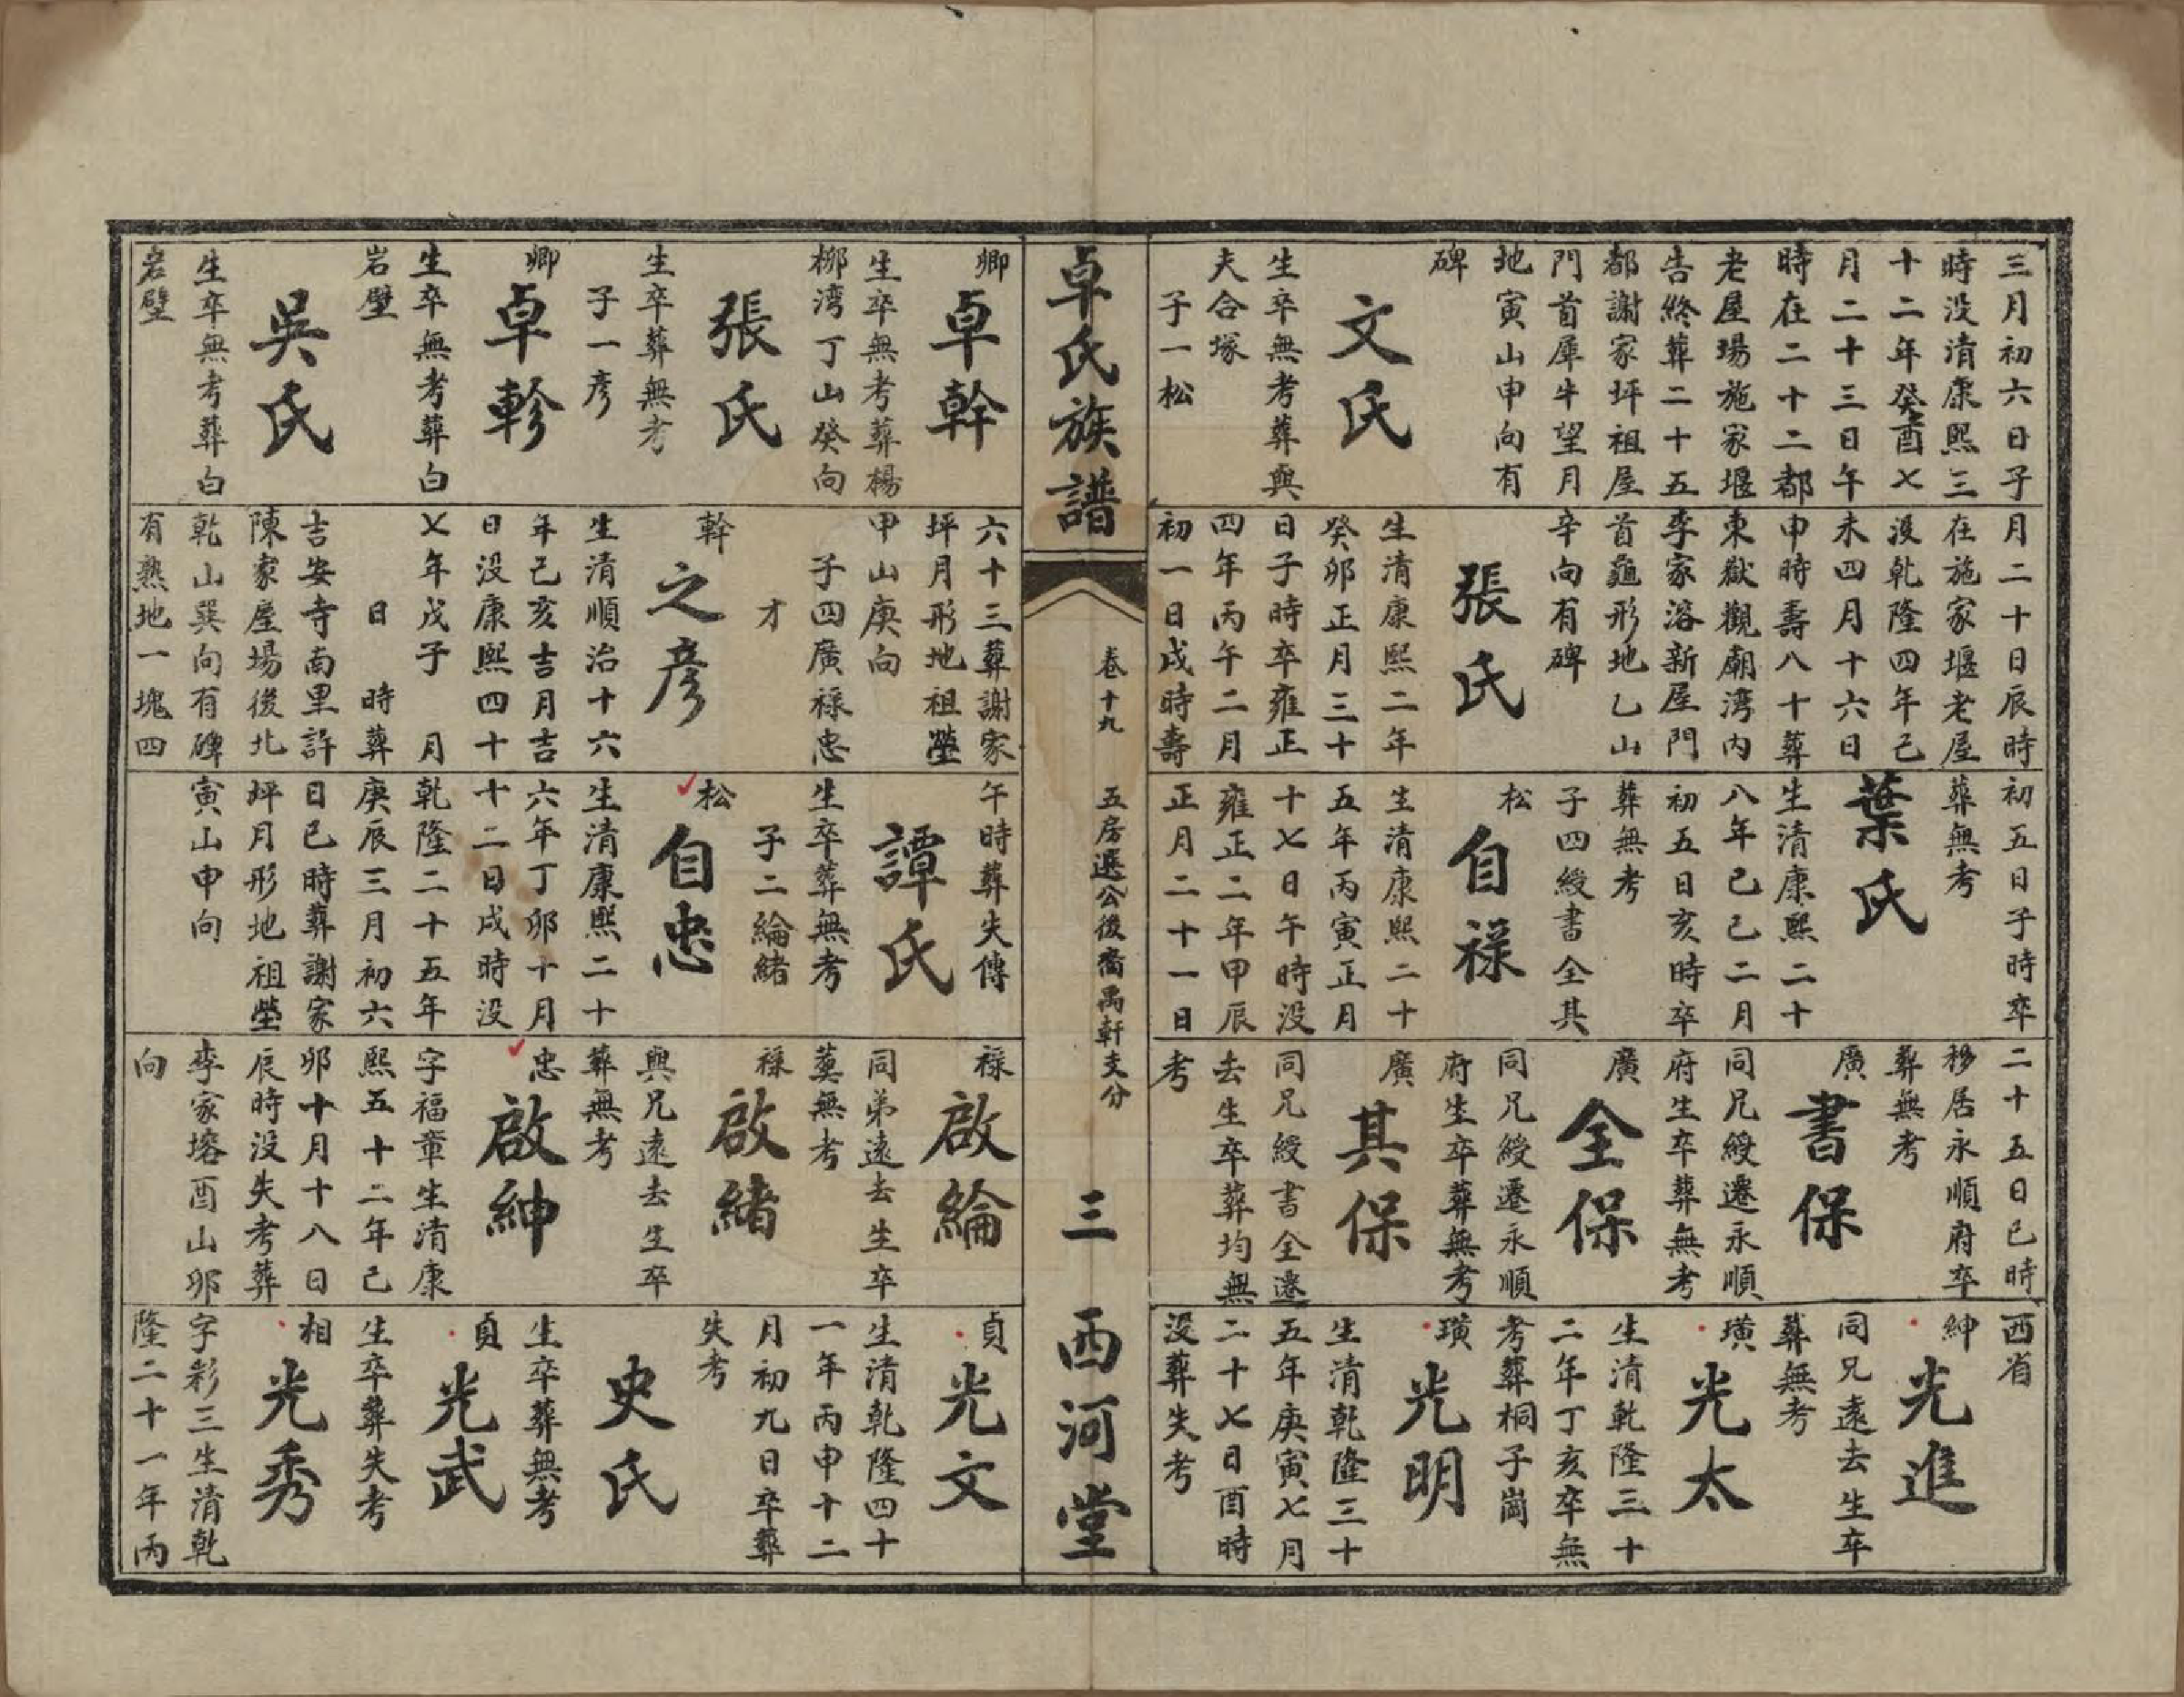 三月初六日子
時没清康熙三
十二年癸酉七
月二十三日午
時在二十二都
老屋場施家堰
告終葬二十五
都謝家坪祖屋
門首犀牛望月
地寅山申向有
碑
文氏
生卒無考葬與
夫合塚
子一松
月二十日辰時
在施家堰老屋
没乾隆四年己
未四月十六日
申時壽八十葬
東嶽觀廟湾内
李家溶新屋門
首龜形地乙山
辛向有碑
張氏
生清康熙二年
癸卯正月三十
日子時卒雍正
四年丙午二月
初一日戌時壽
初五日子時卒
葬無考
葉氏
生清康熙二十
八年己巳二月
初五日亥時卒
葬無考
子四綬書全其
松
自禄
生清康熙二十
五年丙寅正月
十七日午時没
雍正二年甲辰
正月二十一日
二十五日巳時
移居永順府卒
葬無考
廣
書保
同兄綬遷永順
府生卒葬無考
廣
全保
同兄綬遷永順
府生卒葬無考
廣
其保
同兄綬書全遷
去生卒葬均無
考
西省
紳
光進
同兄遠去生卒
葬無考
璜
光太
生清乾隆三十
二年丁亥卒無
考葬桐子崗
璜
光明
生清乾隆三十
五年庚寅七月
二十七日酉時
没葬失考
卓氏族譜
卷十九
五房選公後裔禹軒支分
三
西河堂
卿
卓幹
生卒無考葬楊
柳湾丁山癸向
張氏
生卒葬無考
子一彦
卿
卓軫
生卒無考葬白
岩壁
吳氏
生卒無考葬白
岩壁
六十三葬謝家
坪月形地祖塋
甲山庚向
子四廣禄忠
才
幹
之彦
生清順治十六
年己亥吉月吉
日没康熙四十
七年戊子 月
日 時葬
吉安寺南里許
陳家屋場後北
乾山巽向有碑
有熟地一塊四
午時葬失傳
譚氏
生卒葬無考
子二綸緒
松
自忠
生清康熙二十
六年丁卯十月
十二日戌時没
乾隆二十五年
庚辰三月初六
日巳時葬謝家
坪月形地祖塋
寅山申向
禄
啟綸
同弟遠去生卒
塟無考
禄
啟緒
與兄遠去生卒
葬無考
忠
啟紳
字福章生清康
熙五十二年己
卯十月十八日
辰時没失考葬
李家塝酉山卯
向
貞
光文
生清乾隆四十
一年丙申十二
月初九日卒葬
失考
史氏
生卒葬無考
貞
光武
生卒葬失考
相
光秀
字彩三生清乾
隆二十一年丙